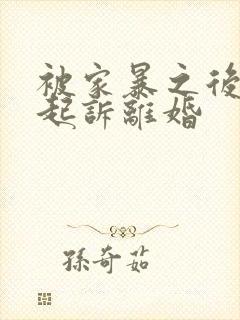 被家暴之後
起訴離婚
孫奇茹